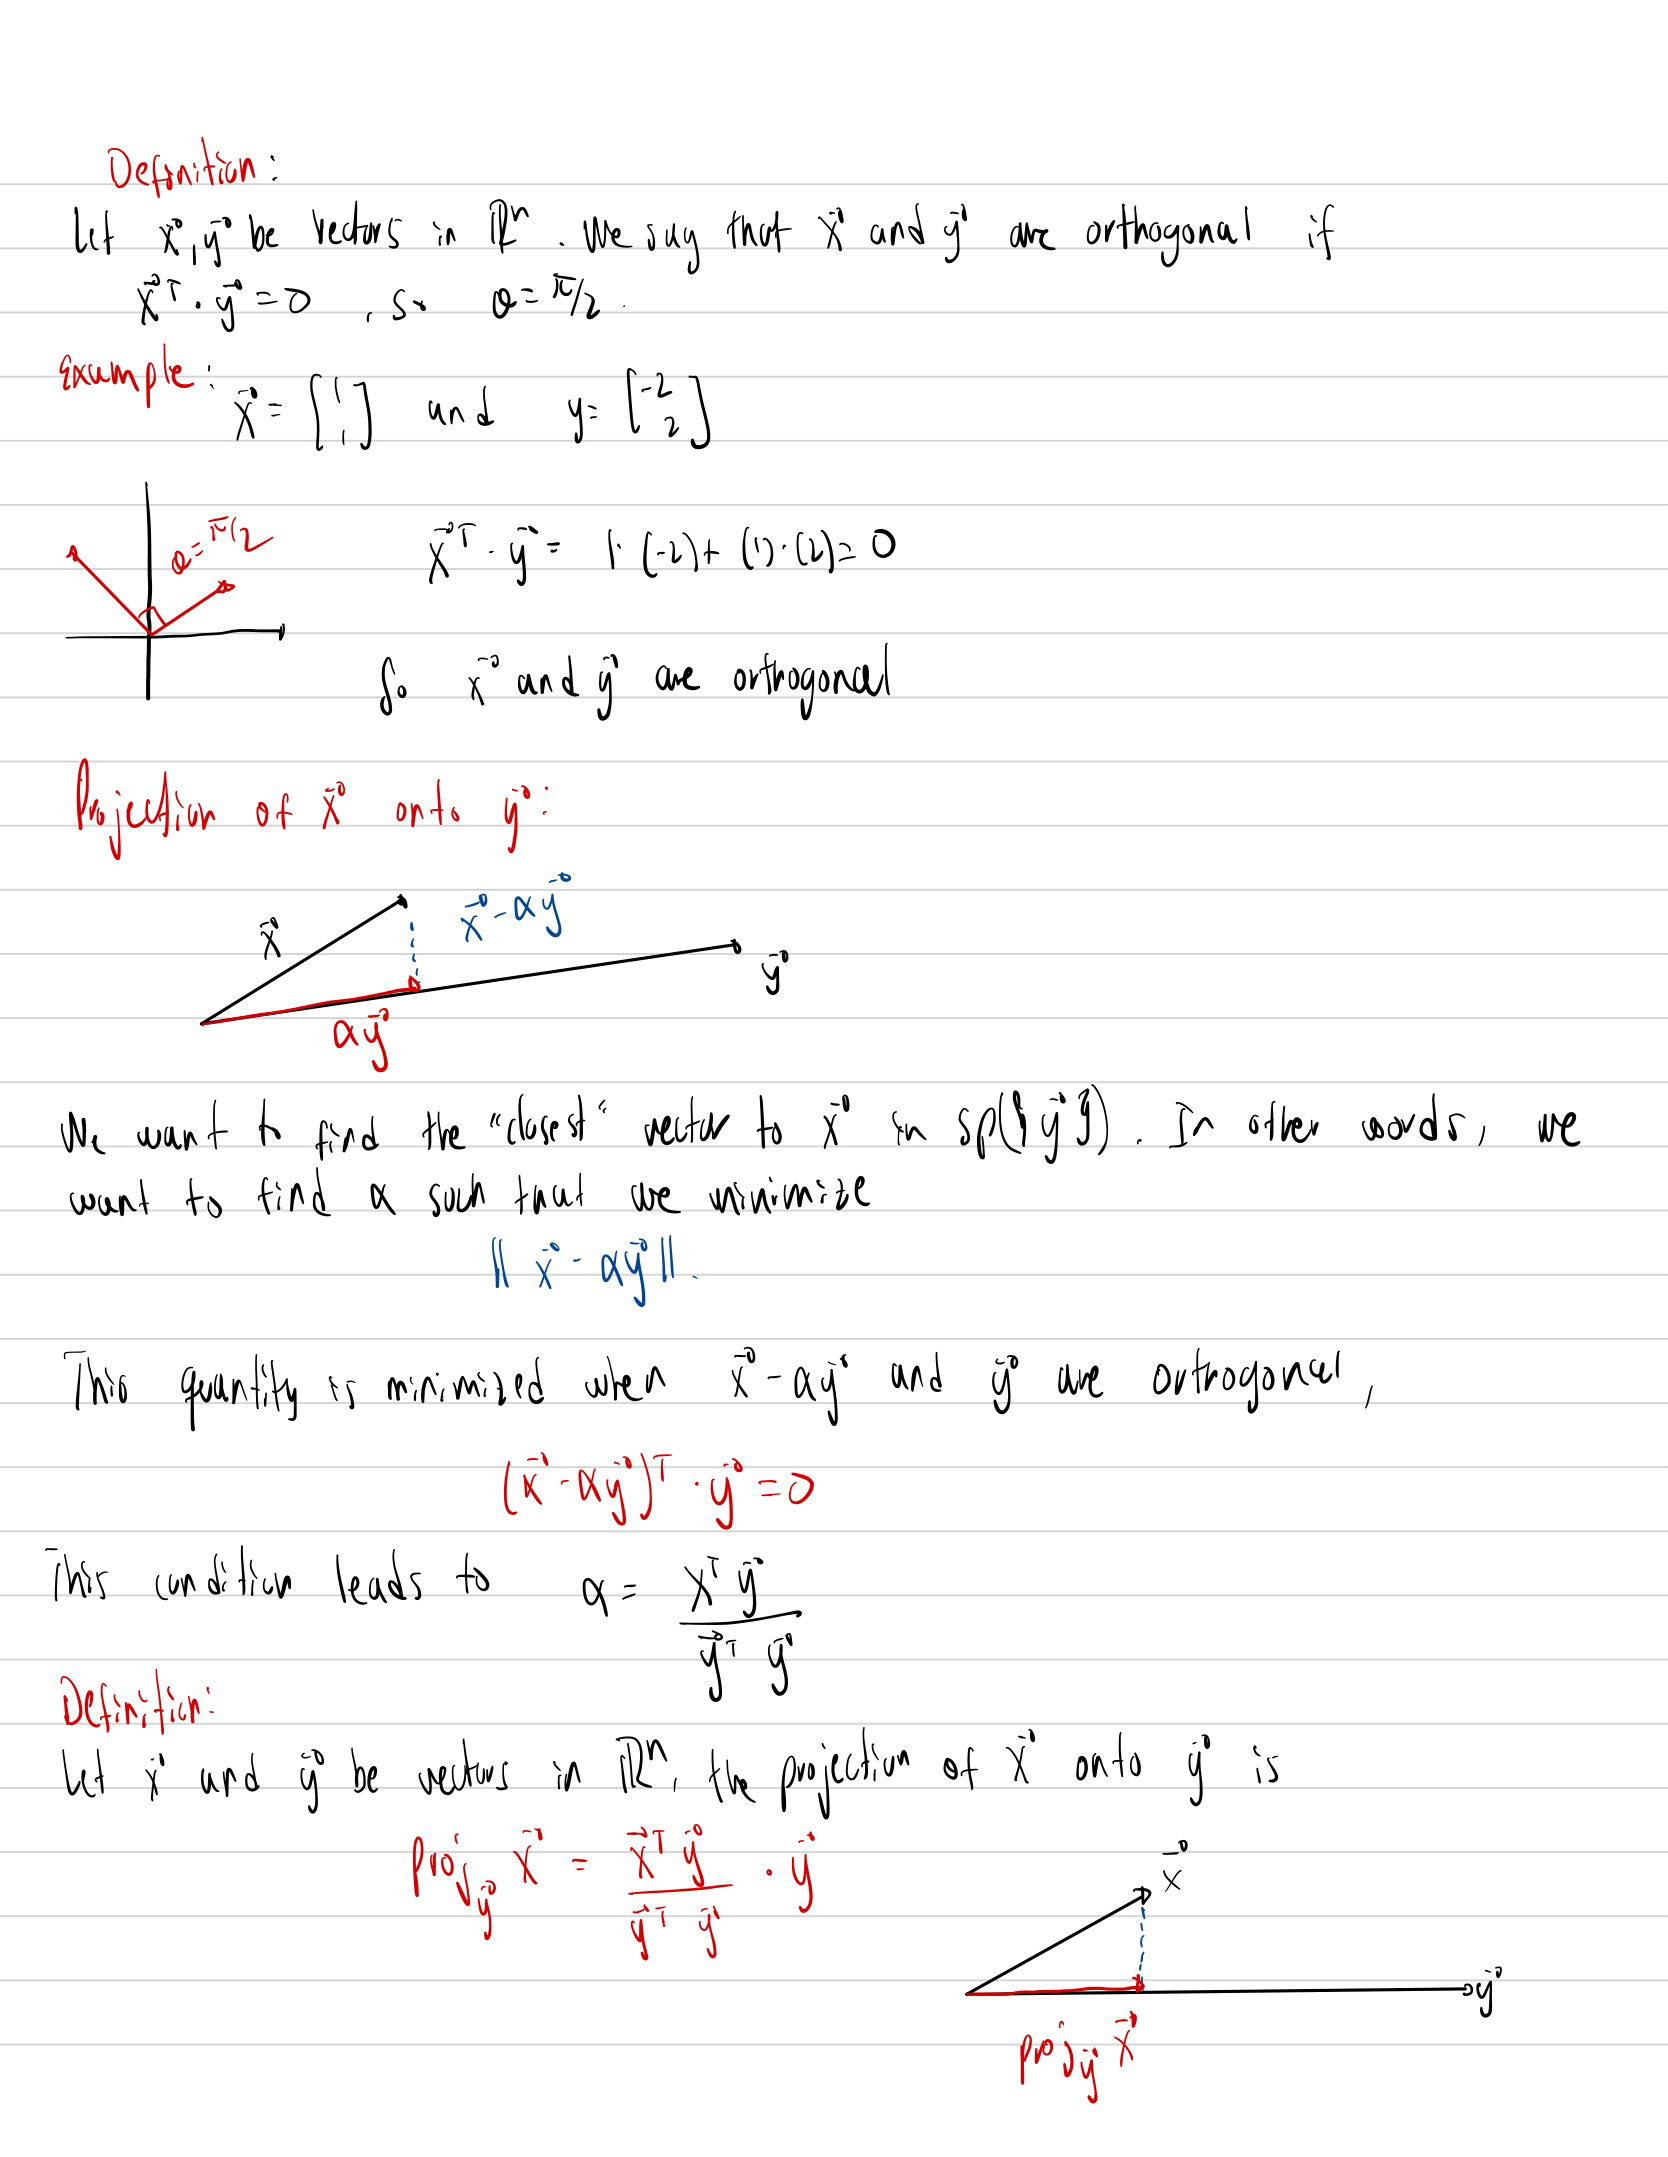 Definition:
Let x⃗, y⃗ be vectors in ℝⁿ. We say that x⃗ and y⃗ are orthogonal if
x⃗ᵀ · y⃗ = 0, so θ = π/2.
Example:
x⃗ = [1 1] and y = [-2 2]
θ = π/2
x⃗ᵀ · y⃗ = 1·(-2) + (1)·(2) = 0
So x⃗ and y⃗ are orthogonal
Projection of x⃗ onto y⃗:
x⃗ - αy⃗
x⃗
y⃗
αy⃗
We want to find the "closest" vector to x⃗ in sp({y⃗}). In other words, we
want to find α such that we minimize
‖x⃗ - αy⃗‖.
This quantity is minimized when x⃗ - αy⃗ and y⃗ are orthogonal,
(x⃗ - αy⃗)ᵀ · y⃗ = 0
This condition leads to α = xᵀy⃗ / y⃗ᵀy⃗
Definition:
Let x⃗ and y⃗ be vectors in ℝⁿ, the projection of x⃗ onto y⃗ is
proj_y⃗ x⃗ = x⃗ᵀy⃗ / y⃗ᵀy⃗ · y⃗
x⃗
y⃗
proj_y⃗ x⃗